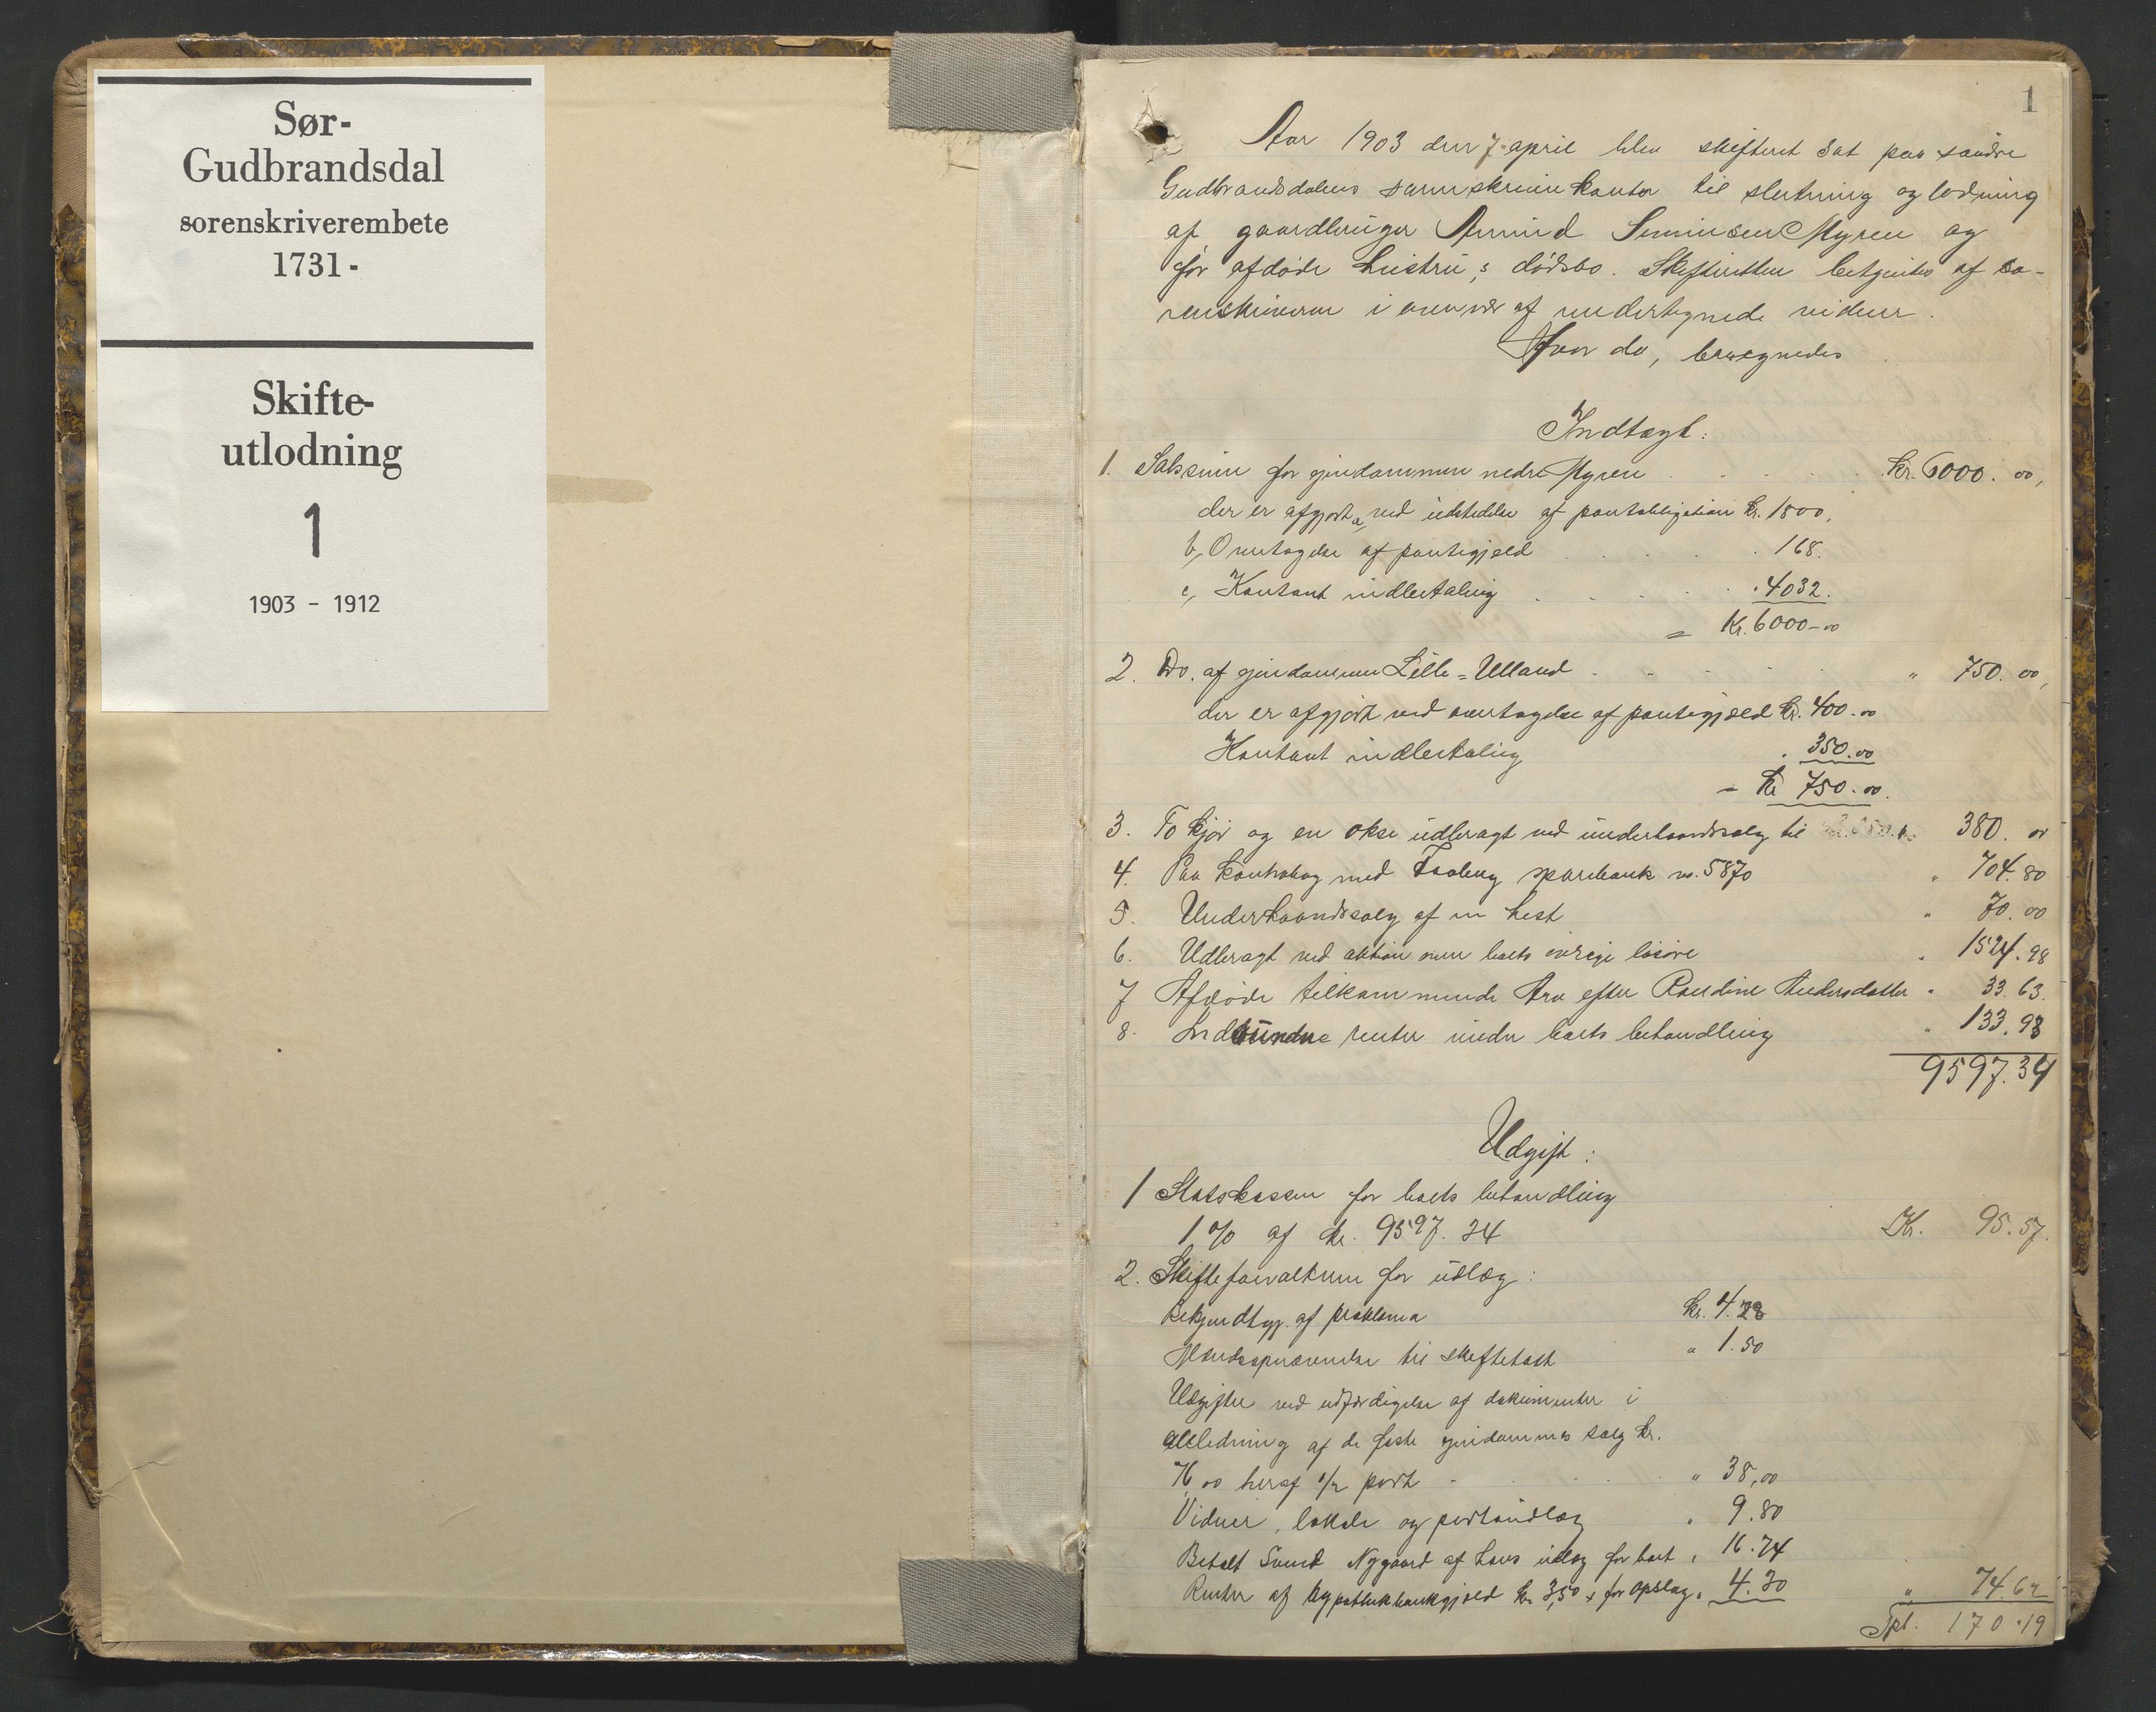 Sør-
Gudbrandsdal
sorenskriverembete
1731-
Skifte-
utlodning
1
1903 - 1912
1
Aar 1903 den 7 april blev skifteret sat paa søndre
Gudbrandsdalens sorenskriverkontor til slutning og lodning
af gaardbruger Amund Simensen Myren og
før afdøde hustru's dødsbo. Skifteretten betjentes af so-
renskriveren i overvær af undertegnede vidner.
Hvor da, beregnedes
Indtægt:
1. Salssum for eiendommen nedre Myren Kr. 6000. 00,
der er afgjort a, ved udstedelse af pantobligation Kr. 1800.
b, Overtagelse af pantegjæld 168.
c, Kontant indbetaling 4032.
= Kr. 6000-00
2. Do. af eiendommen Lille-Ulland " 750. 00,
der er afgjort ved overtagelse af pantegjæld Kr. 400.00
Kontant indbetaling 350.00
= Kr 750.00.
3. To kjør og en okse udbragt ved underhaandssalg til 380. 00
4. Paa kontrabog med Faaberg sparebank no. 5870 " 704.80
5. Underhaandssalg af en hest " 70.00
6. Udbragt ved auktion over boets øvrige løsøre " 1524.98
7 Afdøde tilkommende Arv efter Randine Andersdatter " 33.63.
8. Indvundne renter under boets behandling " 133.98
9597.34
Udgift:
1 Statskassen for boets behandling
1 % af kr. 9597.34 Kr. 95.57.
2. Skifteforvalteren for udlæg:
Bekjendtgj. af proklama kr. 4.28
til skiftetakst " 1.50
Udgifter ved udfærdigelse af dokumenter i
anledning af de faste eiendommes salg kr.
76,00 heraf 1/2 part " 38,00
Vidner, lokale og portoudlæg " 9.80
Betalt Svend Nygaard af hans udlæg for boet " 16.74
Renter af hypothekbankgjæld kr 3,50 + for opslag " 4.30 " 74.62
Tpt. 170.19